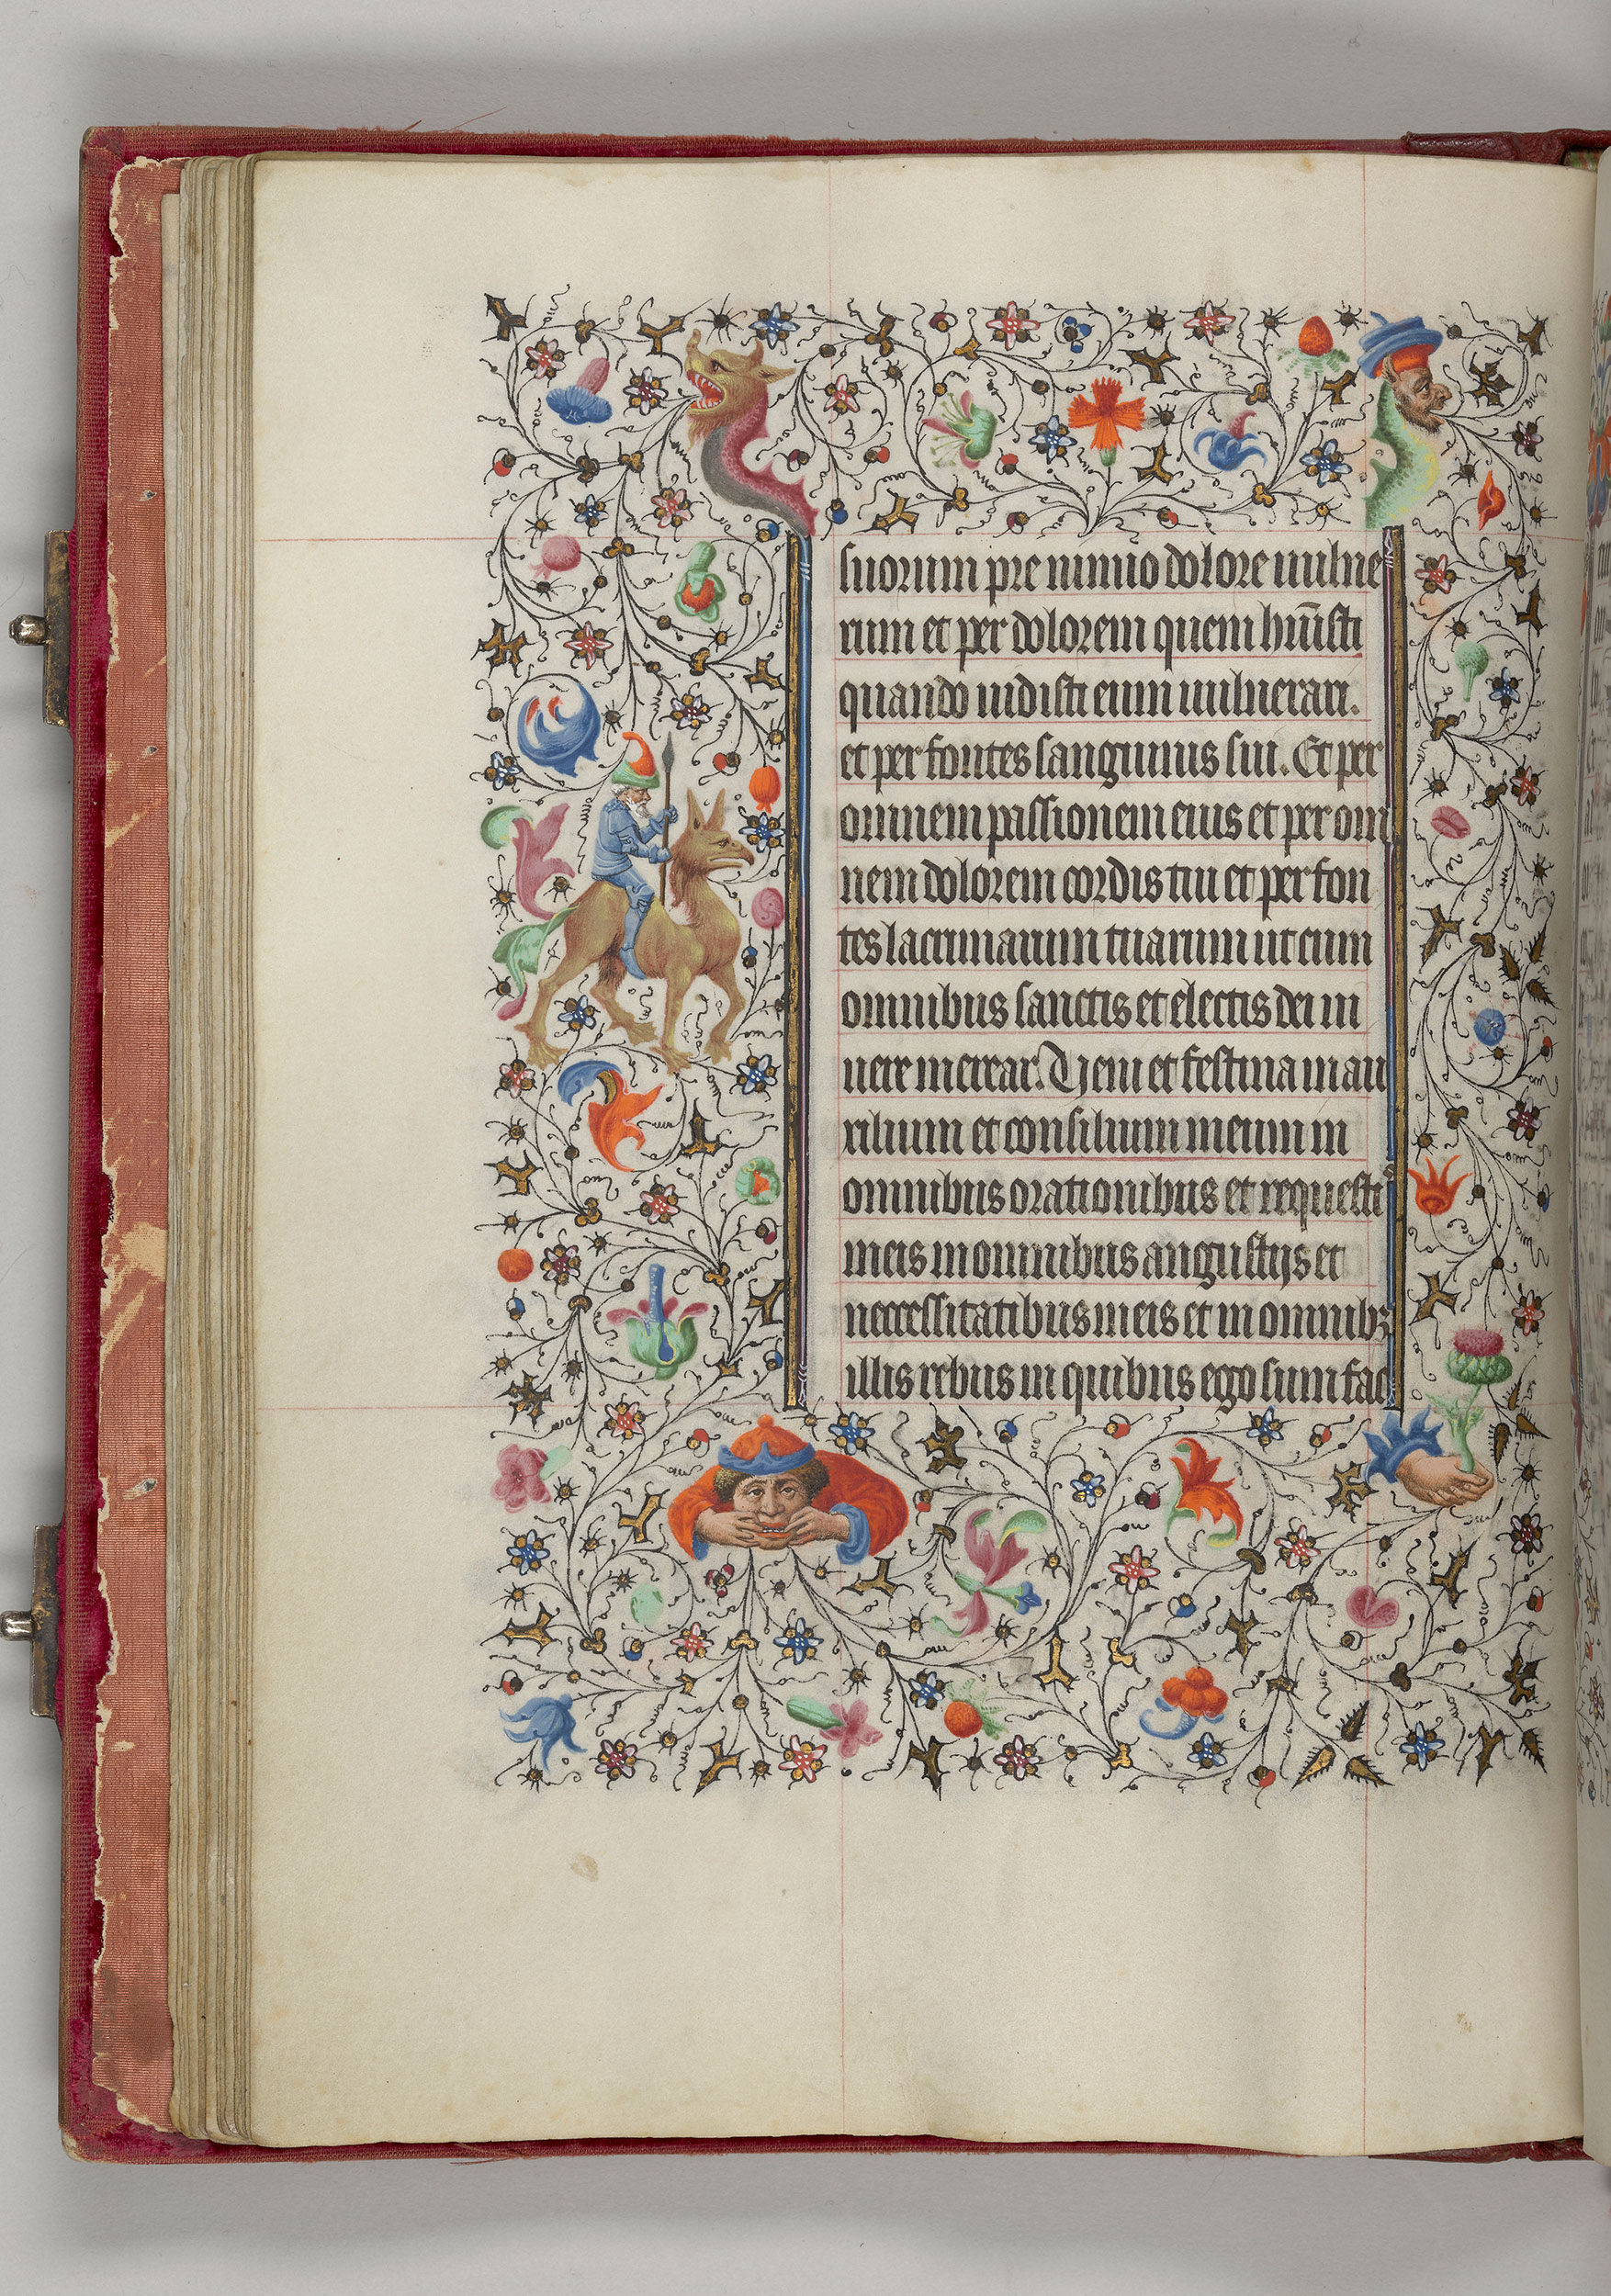 suorum pre nimio dolore uulne
rum et per dolorem quem hūisti
quando uidisti eum uulnerari.
et per fontes sanguinis sui. Et per
omnem passionem eius et per om
nem dolorem cordis tui et per fon
tes lacrimarum tuarum ut cum
omnibus sanctis et electis dei in
uere merear. Veni et festina in au
xilium et consilium meum in
omnibus orationibus et requesti
meis in omnibus angustijs et
necessitatibus meis et in omnibꝫ
illis rebus in quibus ego sum fac